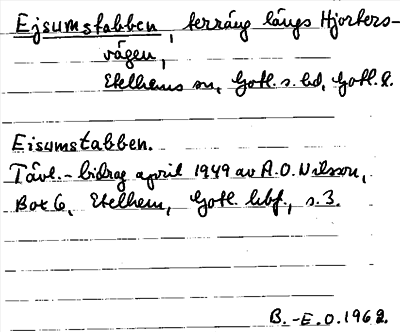 Ejsumstabben, terräng längs Hjorters-
vägen,
Etelhems sn, Gotl. s. hd, Gotl. l.
Eisumstabben.
Tävl.-bidrag april 1949 av A.O. Nilsson,
Box 6, Etelhem, Gotl. hbf., s. 3.
B.-E.O. 1962.